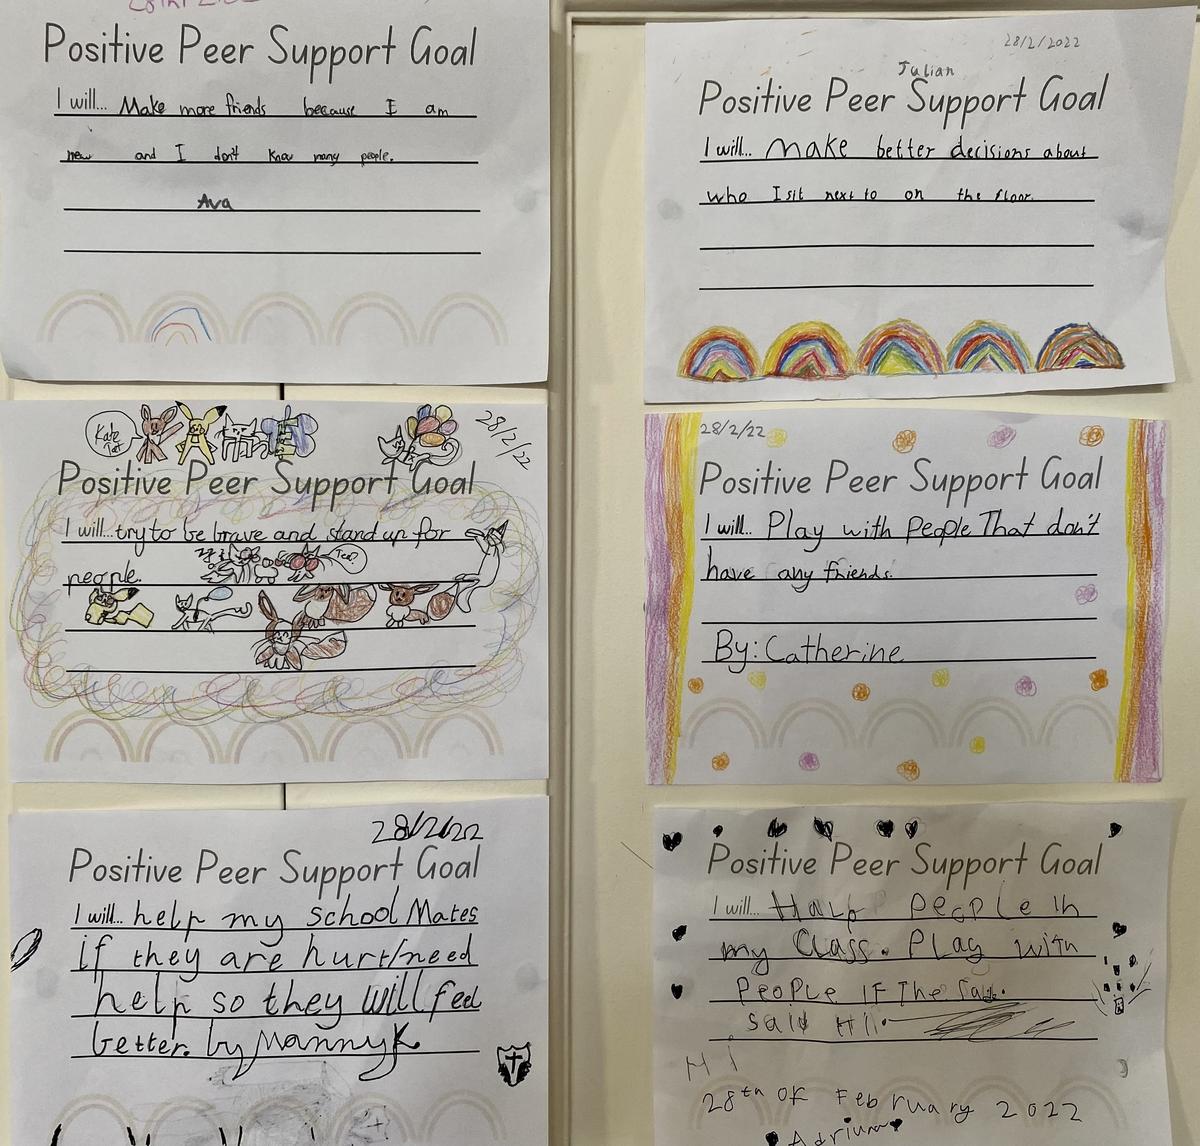 Positive Peer Support Goal
I will... Make more friends because I am
new and I don't know many people.
Ava
28/2/2022
Julian
Positive Peer Support Goal
I will... Make better decisions about
who I sit next to on the floor.
28/2/22
Positive Peer Support Goal
I will... try to be brave and stand up for
people.
28/2/22
Positive Peer Support Goal
I will... Play with people That don't
have any friends.
By: Catherine
28/2/22
Positive Peer Support Goal
I will... help my school Mates
if they are hurt/need
help so they will feel
better. by Manny K
Positive Peer Support Goal
I will... Halp people in
my Class. Play with
People IF The
said HI.
Hi
28th OF February 2022